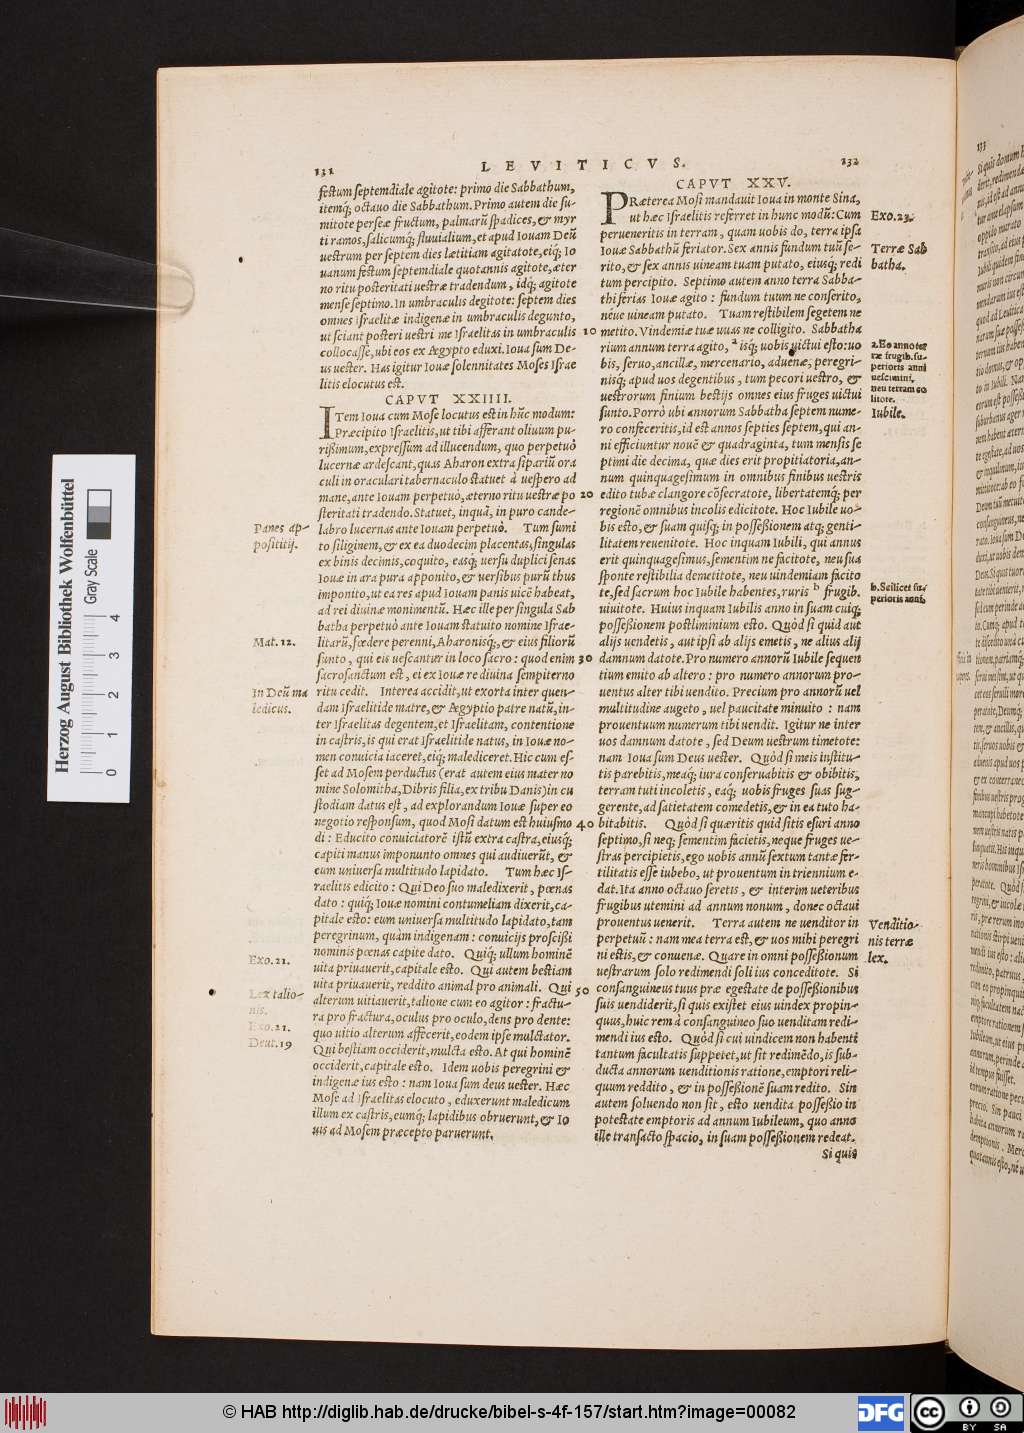 131
LEVITICVS.
232
festum septemdiale agitote: primo die Sabbathum,
itemq́; octauo die Sabbathum. Primo autem die su-
mitote perseæ fructum, palmarũ spadices, & myr
ti ramos, salicumq́; fluuialium, et apud Iouam Deũ
uestrum per septem dies lætitiam agitatote, eiq́; Io
uanum festum septemdiale quotannis agitote, æter
no ritu posteritati uestræ tradendum, idq́; agitote
mense septimo. In umbraculis degitote: septem dies
omnes Israelitæ indigenæ in umbraculis degunto,
ut sciant posteri uestri me Israelitas in umbraculis
collocasse, ubi eos ex Ægypto eduxi. Ioua sum De-
us uester. Has igitur Iouæ solennitates Moses Israe
litis elocutus est.
CAPVT XXIIII.
ITem Ioua cum Mose locutus est in hũc modum:
Præcipito Israelitis, ut tibi afferant oliuum pu-
rißimum, expressum ad illucendum, quo perpetuò
lucernæ ardescant, quas Aharon extra sipariũ ora
culi in oraculari tabernaculo statuet à uespero ad
mane, ante Iouam perpetuò, æterno ritu uestræ po
steritati tradendo. Statuet, inquã, in puro cande-
labro lucernas ante Iouam perpetuò. Tum sumi
to siliginem, & ex ea duodecim placentas, singulas
ex binis decimis, coquito, easq́; uersu duplici senas
Iouæ in ara pura apponito, & uersibus purũ thus
imponito, ut ea res apud Iouam panis uicẽ habeat,
ad rei diuinæ monimentũ. Hæc ille per singula Sab
batha perpetuò ante Iouam statuito nomine Israe-
litarũ, fœdere perenni, Aharonisq́;, & eius filiorũ
sunto, qui eis uescantur in loco sacro: quod enim
sacrosanctum est, ei ex Iouæ re diuina sempiterno
ritu cedit. Interea accidit, ut exorta inter quen-
dam israelitide matre, & Ægyptio patre natũ, in-
ter Israelitas degentem, et Israelitam, contentione
in castris, is qui erat Israelitide natus, in Iouæ no-
men conuicia iaceret, eiq́; malediceret. Hic cum es-
set ad Mosem perductus (erat autem eius mater no
mine Solomitha, Dibris filia, ex tribu Danis) in cu
stodiam datus est, ad explorandum Iouæ super eo
negotio responsum, quod Mosi datum est huiusmo
di: Educito conuiciatorẽ istũ extra castra, eiusq́;
capiti manus imponunto omnes qui audiuerũt, &
eum uniuersa multitudo lapidato. Tum hæc Is-
raelitis edicito: Qui Deo suo maledixerit, pœnas
dato: quiq́; Iouæ nomini contumeliam dixerit, ca-
pitale esto: eum uniuersa multitudo lapidato, tam
peregrinum, quàm indigenam: conuicijs proscißi
nominis pœnas capite dato. Quiq́; ullum hominẽ
uita priuauerit, capitale esto. Qui autem bestiam
uita priuauerit, reddito animal pro animali. Qui
alterum uitiauerit, talione cum eo agitor: fractu-
ra pro fractura, oculus pro oculo, dens pro dente:
quo uitio alterum affecerit, eodem ipse mulctator.
Qui bestiam occiderit, mulcta esto. At qui hominẽ
occiderit, capitale esto. Idem uobis peregrini &
indigenæ ius esto: nam Ioua sum deus uester. Hæc
Mose ad Israelitas elocuto, eduxerunt maledicum
illum ex castris, eumq́; lapidibus obruerunt, & Io
uis ad Mosem præcepto paruerunt.
Panes ap-
posititij.
Mat. 12.
In Deũ ma
ledicus.
Exo. 21.
Lex talio-
nis.
Exo. 21.
Deut. 19
10
20
30
40
50
CAPVT XXV.
PRæterea Mosi mandauit Ioua in monte Sina,
ut hæc Israelitis referret in hunc modũ: Cum
perueneritis in terram, quam uobis do, terra ipsa
Iouæ Sabbathũ feriator. Sex annis fundum tuũ se-
rito, & sex annis uineam tuam putato, eiusq́; redi
tum percipito. Septimo autem anno terra Sabba-
thi ferias Iouæ agito: fundum tuum ne conserito,
néue uineam putato. Tuam restibilem segetem ne
metito. Vindemiæ tuæ uuas ne colligito. Sabbatha
rium annum terra agito, a isq́; uobis uictui esto: uo
bis, seruo, ancillæ, mercenario, aduenæ, peregri-
nisq́; apud uos degentibus, tum pecori uestro, &
uestrorum finium bestijs omnes eius fruges uictui
sunto. Porrò ubi annorum Sabbatha septem nume-
ro confeceritis, id est annos septies septem, qui an-
ni efficiuntur nouẽ & quadraginta, tum mensis se
ptimi die decima, quæ dies erit propitiatoria, an-
num quinquagesimum in omnibus finibus uestris
edito tubæ clangore cõsecratote, libertatemq́; per
regionẽ omnibus incolis edicitote. Hoc Iubile uo-
bis esto, & suam quisq́; in possessionem atq; genti-
litatem reuenitote. Hoc inquam Iubili, qui annus
erit quinquagesimus, sementim ne facitote, neu sua
sponte restibilia demetitote, neu uindemiam facito
te, sed sacrum hoc Iubile habentes, ruris b frugib.
uiuitote. Huius inquam Iubilis anno in suam cuiq́;
possessionem postliminium esto. Quòd si quid aut
alijs uendetis, aut ipsi ab alijs emetis, ne alius alij
damnum datote. Pro numero annorũ Iubile sequen
tium emito ab altero: pro numero annorum pro-
uentus alter tibi uendito. Precium pro annorũ uel
multitudine augeto, uel paucitate minuito: nam
prouentuum numerum tibi uendit. Igitur ne inter
uos damnum datote, sed Deum uestrum timetote:
nam Ioua sum Deus uester. Quòd si meis institu-
tis parebitis, meaq́; iura conseruabitis & obibitis,
terram tuti incoletis, eaq́; uobis fruges suas sug-
gerente, ad satietatem comedetis, & in ea tuto ha-
bitabitis. Quòd si quæritis quid sitis esuri anno
septimo, si neq; sementim facietis, neque fruges ue-
stras percipietis, ego uobis annũ sextum tantæ fer-
tilitatis esse iubebo, ut prouentum in triennium e-
dat. Ita anno octauo seretis, & interim ueteribus
frugibus utemini ad annum nonum, donec octaui
prouentus uenerit. Terra autem ne uenditor in
perpetuũ: nam mea terra est, & uos mihi peregri
ni estis, & conuenæ. Quare in omni possessionum
uestrarum solo redimendi soli ius conceditote. Si
consanguineus tuus præ egestate de possessionibus
suis uendiderit, si quis existet eius uindex propin-
quus, huic rem à consanguineo suo uenditam redi-
mendi ius esto. Quòd si cui uindicem non habenti
tantum facultatis suppetet, ut sit redimẽdo, is sub-
ducta annorum uenditionis ratione, emptori reli-
quum reddito, & in possessionẽ suam redito. Sin
autem soluendo non sit, esto uendita possessio in
potestate emptoris ad annum Iubileum, quo anno
ille transacto spacio, in suam possessionem redeat.
Si quis
Exo. 23.
Terræ Sab
batha.
a. Eo anno ter
ræ frugib. su-
perioris anni
uescimini,
neu terram co
litote.
Iubile.
b. Scilicet su-
perioris anni.
Venditio-
nis terræ
lex.
133
Herzog August Bibliothek Wolfenbüttel
Gray Scale
0 1 2 3 4
© HAB http://diglib.hab.de/drucke/bibel-s-4f-157/start.htm?image=00082
DFG
cc BY SA